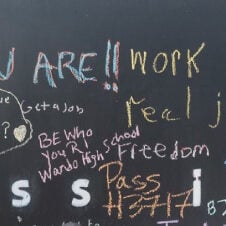 U ARE!!
work
Get a Job
real j
?
BE Who
You R
Wando High School
Freedom
Pass
H3717
s s i